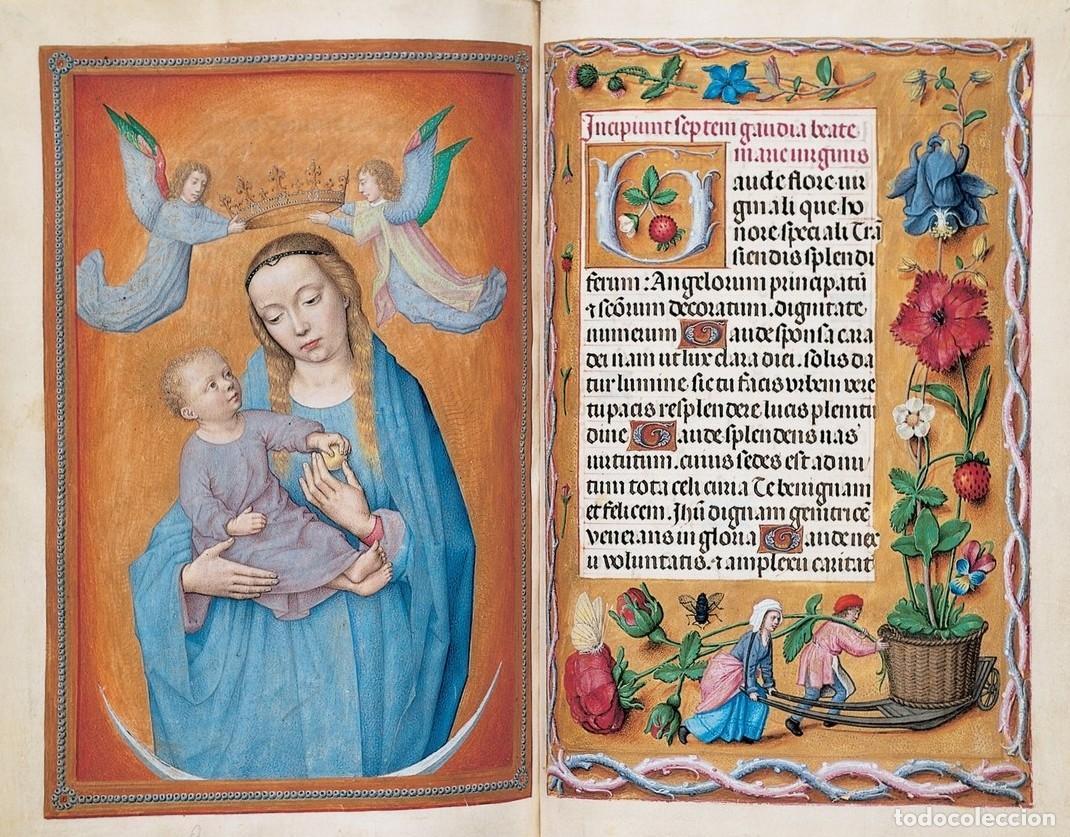 Incipiunt septem gaudia beate
marie uirginis
Gaude flore uir
ginali que ho
nore speciali Trā
siendis splendi
ferum : Angelorum principatū
⁊ scōrum decoratum. dignitate
numerum Gaude sponsa cara
dei nam ut lux clara diei. solis da
tur lumine. sic tu facis orbem vere
tu pacis resplendere. lucis plenitu
dine Gaude splendens uas
uirtutum. cuius sedes est ad nu
tum tota celi curia Te benignam
et felicem. Jhū dignam genitricē
venerans in gloria Gaude nex
u voluntatis. ⁊ amplexu caritat
todocoleccion